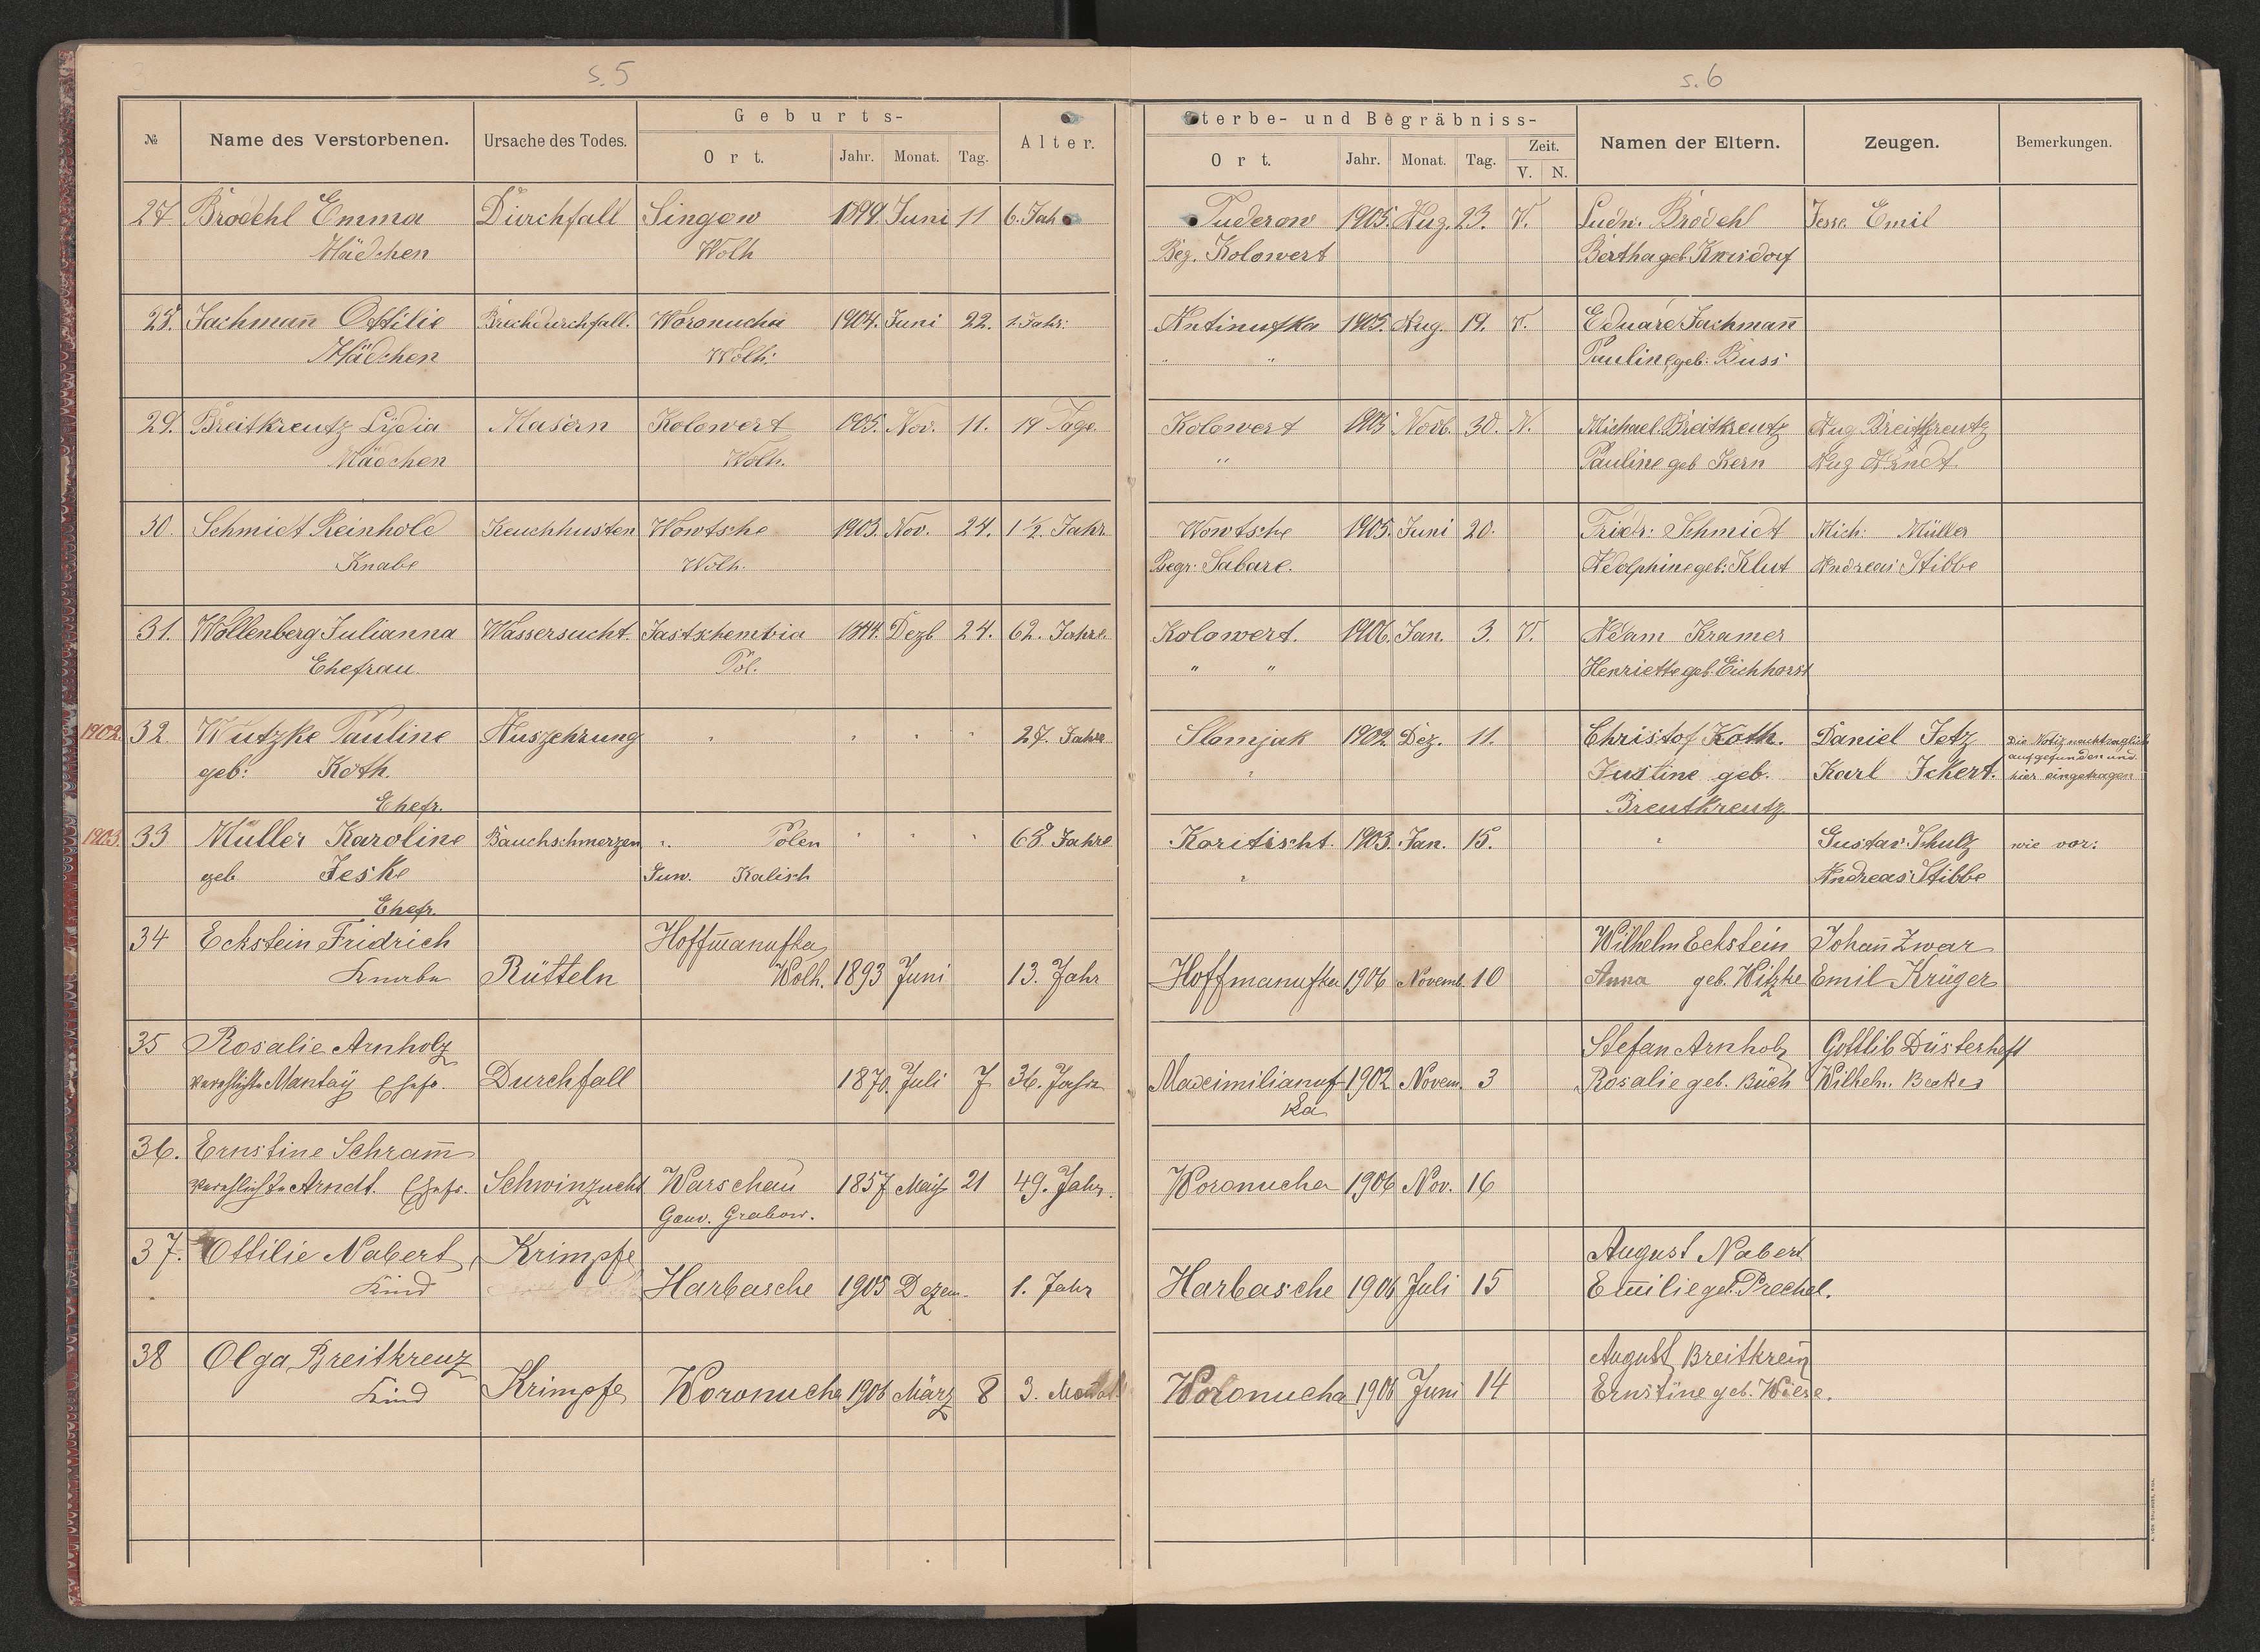 s. 5
s. 6
№ Name des Verstorbenen. Ursache des Todes. Geburts- Ort. Jahr. Monat. Tag. Alter. Sterbe- und Begräbniss- Ort. Jahr. Monat. Tag. Zeit. V. N. Namen der Eltern. Zeugen. Bemerkungen.
27. Brodehl Emma Durchfall Singow 1899. Juni 11 6. Jah Tuderow 1905. Aug. 23. V. Ludw. Brodehl Jesse Emil
Mädchen Wolh Beg. Kolowert Bertha geb.
28. Jachmañ Ottilie Brechdurchfall. Woronucha 1904. Juni 22. 1. Jahr. Antinufka 1905. Aug. 19. V. Eduard Jachmañ
Mädchen Wolh: " " Pauline geb: Buss
29. Breitkreutz Lydia Masern Kolowert 1905. Nov. 11. 19 Tage. Kolowert 1905 Novb. 30. N. Michael Breitkreutz Aug Breitkreutz
Mädchen Wolh. " Pauline geb Kern Aug Arndt
30. Schmidt Reinhold Keuchhusten Wowtsche 1903. Nov. 24. 1 ½. Jahr Wowtsche 1905. Juni 20. Fridr: Schmidt Mich: Müller
Knabe Wolh. Begr: Sabare. Adolphine geb: Klut Andreas Stibbe
31. Wollenberg Julianna Wassersucht Jastschembia 1844. Dezb 24. 62. Jahre Kolowert. 1906. Jan. 3. V. Adam Kramer
Ehefrau. Pol. " " Henriette geb. Eichhorst
1902. 32. Wutzke Pauline Auszehrung " " " " 27. Jahre Slomjak 1902 Dez. 11. Christof Koth. Daniel Jetz Die Notiz nachträglich
geb: Koth. " Justine geb. Karl Ickert. aufgefunden und
Ehefr. Breutkreutz hier eingetragen
1903. 33 Müller Karoline Bauchschmerzen " Polen " " " 68 Jahre Koritischt. 1903. Jan. 15. " Gustav Schulz wie vor:
geb Jeske Guw. Kalisch " Andreas Stibbe
Ehefr.
34 Eckstein Fridrich Hoffmanufka Wilhelm Eckstein Johañ Zwar
Knabe Rütteln Wolh. 1893 Juni 13. Jahr Hoffmanufka 1906 Novemb. 10 Anna geb. Witzke Emil Krüger
35 Rosalie Arnholz Stefan Arnholz Gottlib Düsterheft
verehlichte Mantaÿ Ehefr. Durchfall 1870. Juli 7 36. Jahr Maximilianuf- 1902 Novem. 3 Rosalie geb. Büch Wilhelm Becker
ka
36. Ernstine Schram̄
verehlichte Arndt. Ehefr. Schwinzucht Warschau 1857 Maÿ 21 49. Jahr. Woronucha 1906 Nov. 16
Gouv. Grabow.
37. Ottilie Nabert Krimpfe August Nabert
Kind Harbasche 1905 Dezem. 1. Jahr Harbasche 1906 Juli 15 Emilie geb. Prechel.
38 Olga Breitkreuz August Breitkreuz
Kind Krimpfe Woronucha 1906 März 8 3. Monat Woronucha 1906 Juni 14 Ernstine geb. Wiese.